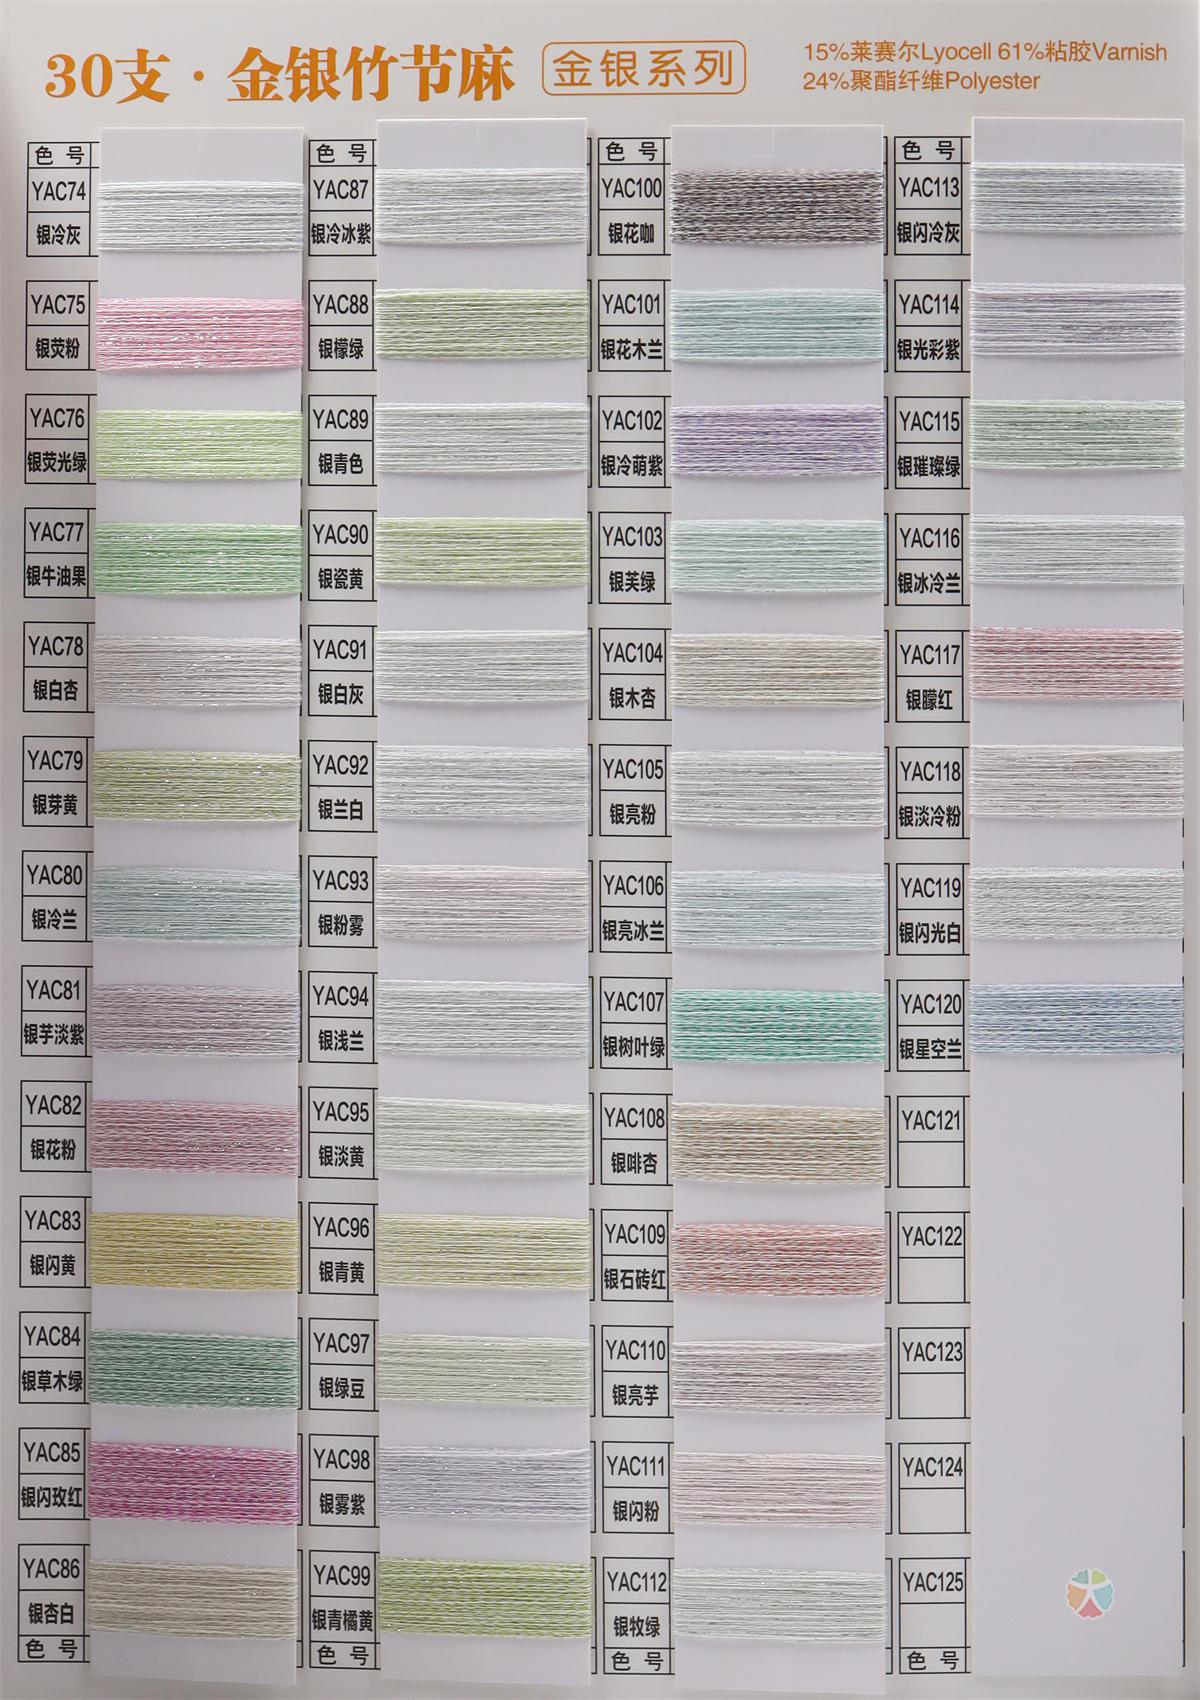 30支·金银竹节麻
金银系列
15%莱赛尔Lyocell 61%粘胶Varnish
24%聚酯纤维Polyester
色号
YAC74
银冷灰
YAC75
银荧粉
YAC76
银荧光绿
YAC77
银牛油果
YAC78
银白杏
YAC79
银芽黄
YAC80
银冷兰
YAC81
银芋淡紫
YAC82
银花粉
YAC83
银闪黄
YAC84
银草木绿
YAC85
银闪玫红
YAC86
银杏白
色号
色号
YAC87
银冷冰紫
YAC88
银檬绿
YAC89
银青色
YAC90
银瓷黄
YAC91
银白灰
YAC92
银兰白
YAC93
银粉雾
YAC94
银浅兰
YAC95
银淡黄
YAC96
银青黄
YAC97
银绿豆
YAC98
银雾紫
YAC99
银青橘黄
色号
色号
YAC100
银花咖
YAC101
银花木兰
YAC102
银冷萌紫
YAC103
银芙绿
YAC104
银木杏
YAC105
银亮粉
YAC106
银亮冰兰
YAC107
银树叶绿
YAC108
银啡杏
YAC109
银石砖红
YAC110
银亮芋
YAC111
银闪粉
YAC112
银牧绿
色号
色号
YAC113
银闪冷灰
YAC114
银光彩紫
YAC115
银璀璨绿
YAC116
银冰冷兰
YAC117
银朦红
YAC118
银淡冷粉
YAC119
银闪光白
YAC120
银星空兰
YAC121
YAC122
YAC123
YAC124
YAC125
色号